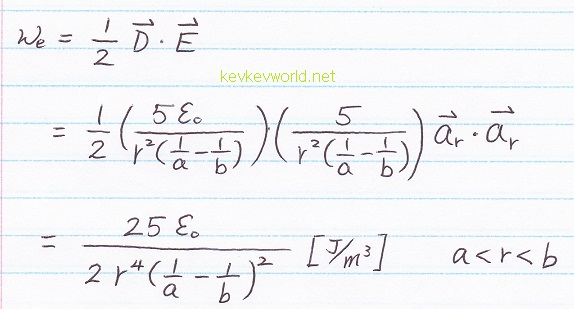 We = 1/2 D⃗ · E⃗
kevkevworld.net
= 1/2 (5ε₀ / r²(1/a − 1/b)) (5 / r²(1/a − 1/b)) a⃗ᵣ · a⃗ᵣ
= 25ε₀ / 2r⁴(1/a − 1/b)² [J/m³] a<r<b